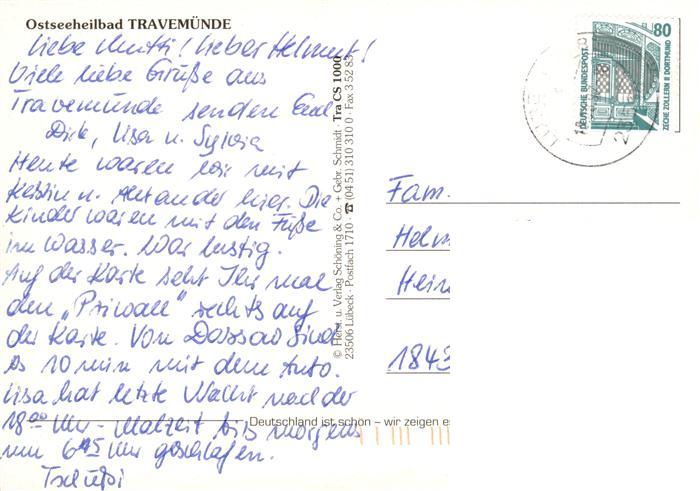 Ostseeheilbad TRAVEMÜNDE
Liebe Mutti! Lieber Helmut!
Viele liebe Grüße aus
Travemünde senden Euch
Dirk, Lisa u. Sylvia
Heute waren wir mit
Kerstin u. Alexander hier. Die
Kinder waren mit den Füße
im Wasser. War lustig.
Auf der Karte seht Ihr mal
den „Priwall" rechts auf
der Karte. Von Dassow sind
es 10 min mit dem Auto.
Lisa hat letzte Nacht nach der
18⁰⁰ Uhr - Malzeit bis morgens
um 6⁴⁵ Uhr geschlafen.
Tschüßi
© Herst. u. Verlag Schöning & Co. + Gebr. Schmidt · Tra CS 1000
23506 Lübeck · Postfach 1710 ☎ (04 51) 310 310 · Fax 3 52 83
Deutschland ist schön – wir zeigen es
80
DEUTSCHE BUNDESPOST
ZECHE ZOLLERN II DORTMUND
Fam.
Helm
Hein
1843